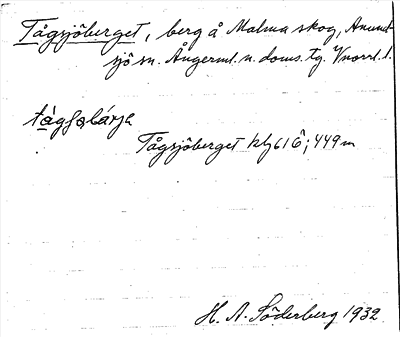 Tågsjöberget, berg å Malma skog, Anund-
sjö sn. Ångerml. n. doms. tg. Vnorrl. l.
Tågsjöberget kbj 61 Ö; 449 m
H. A. Söderberg 1932